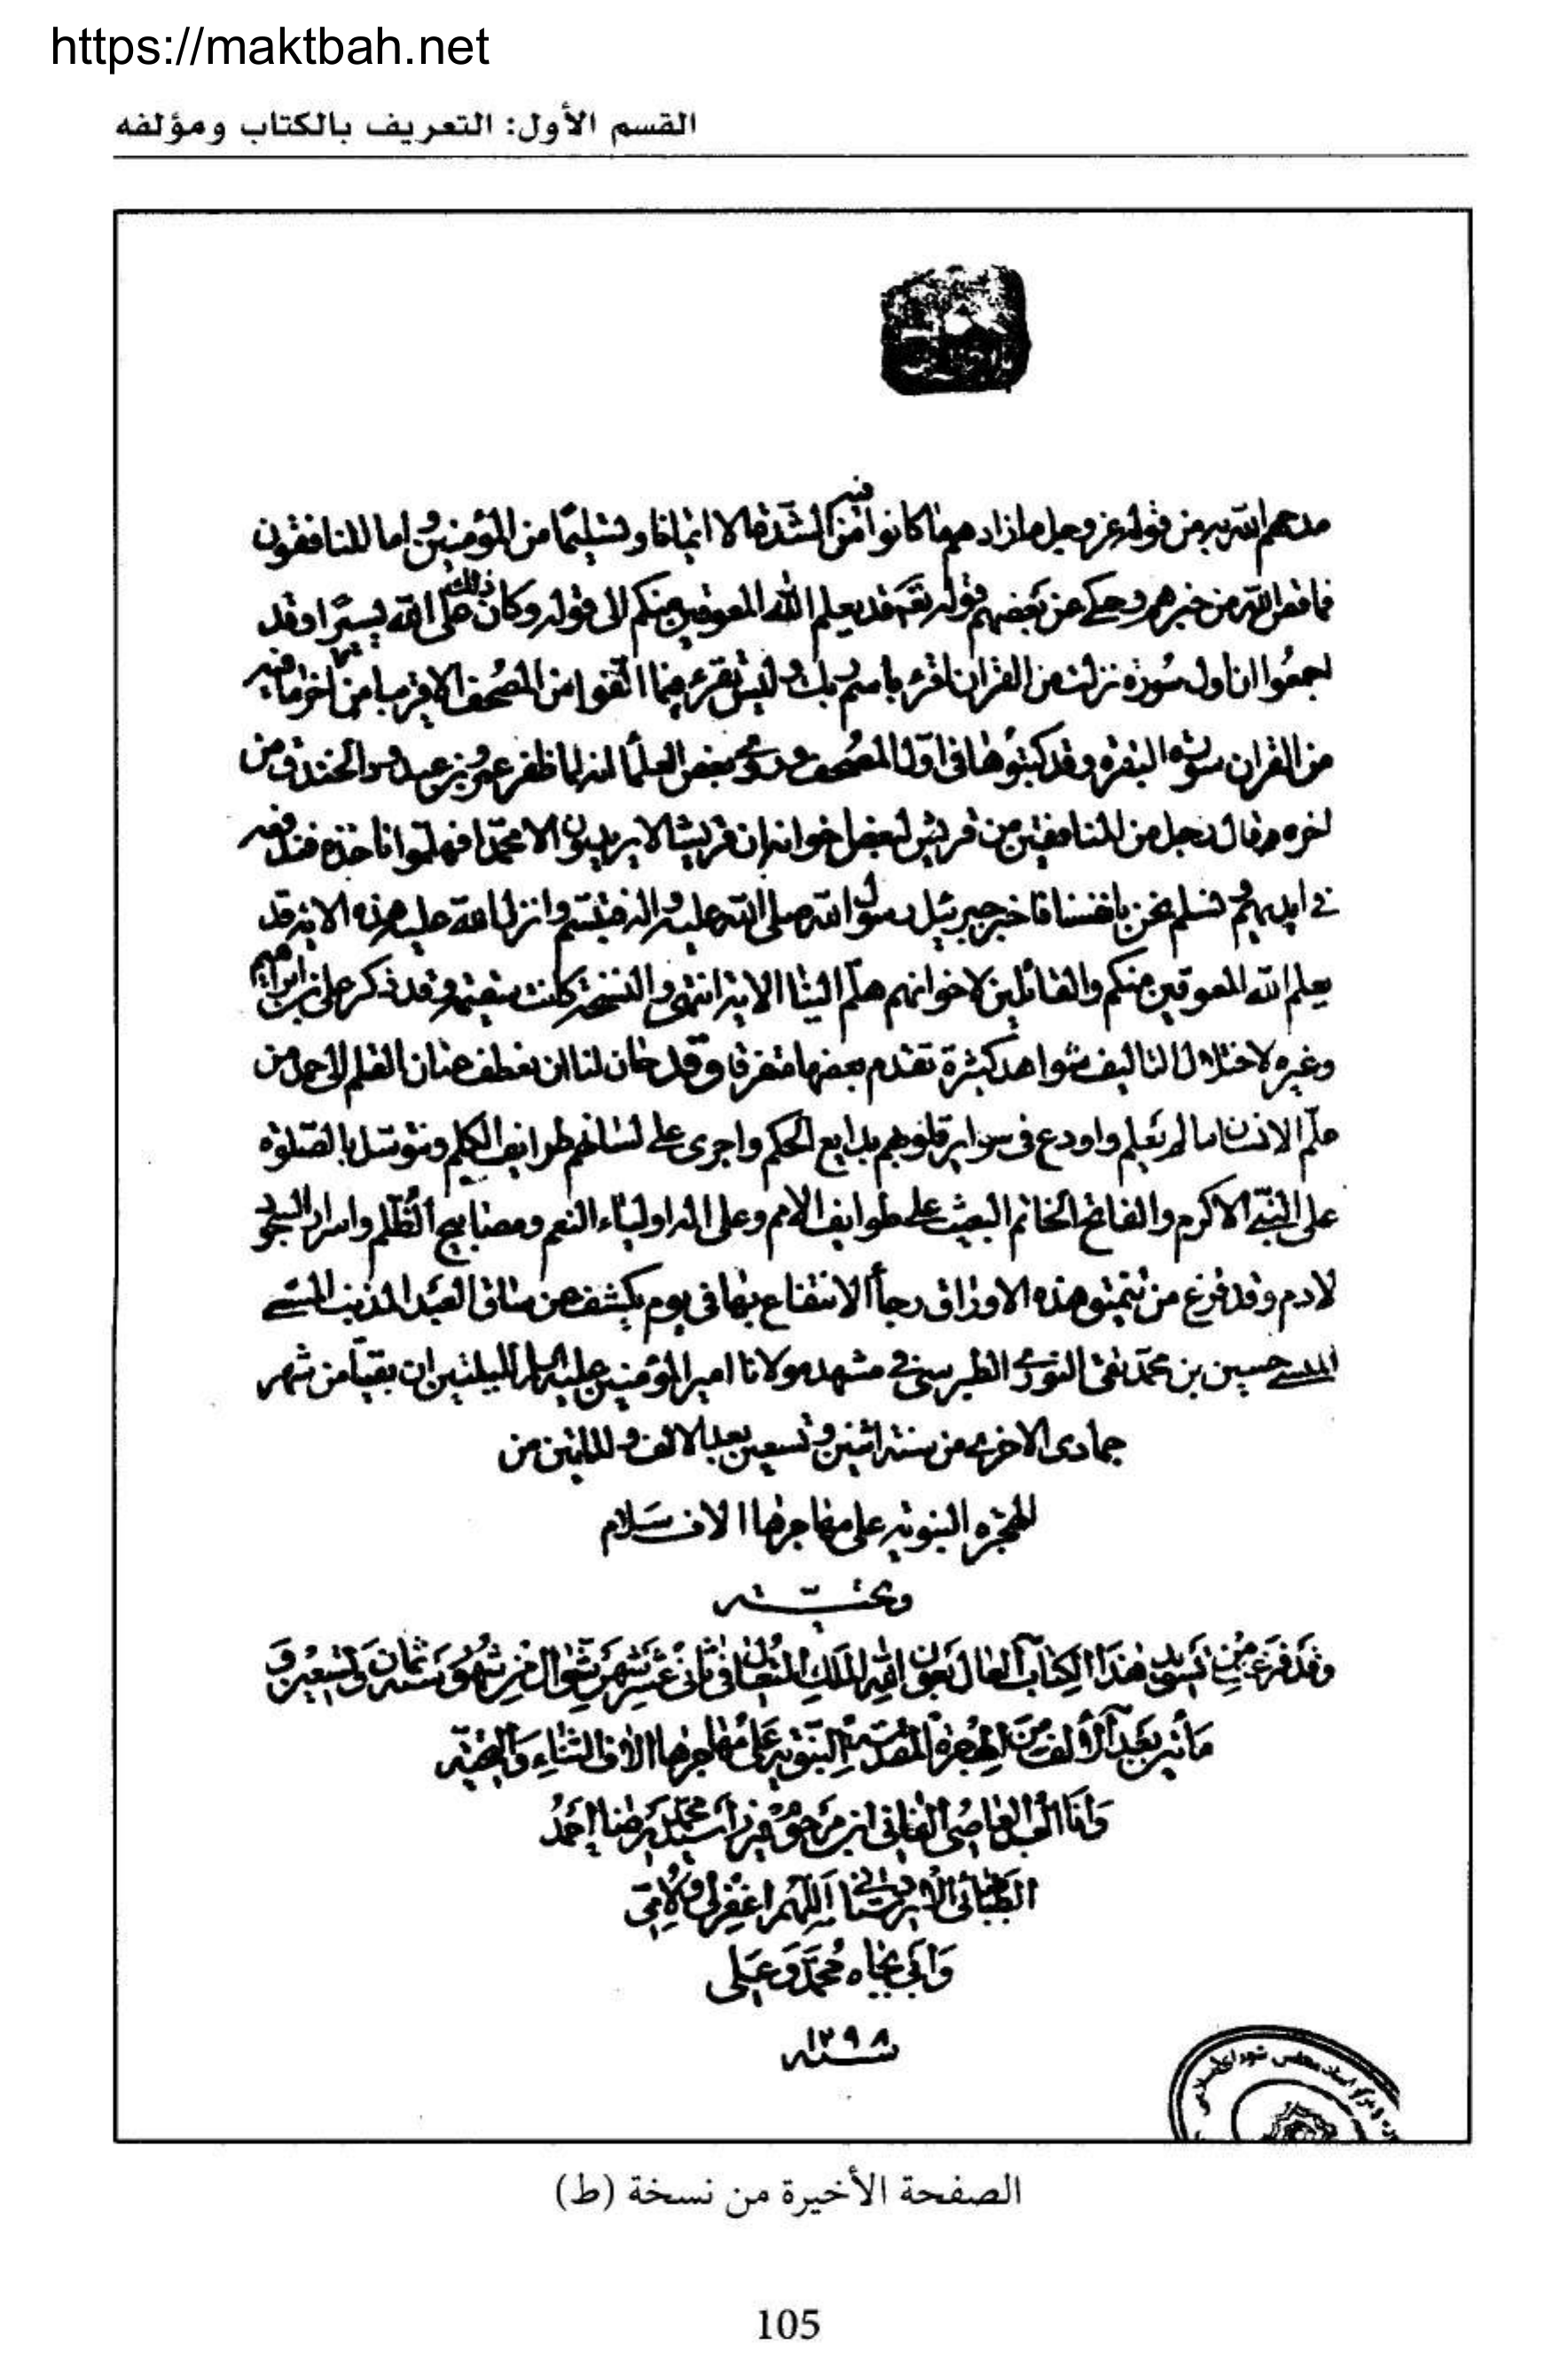 https://maktbah.net
القسم الأول: التعريف بالكتاب ومؤلفه
مدحهم الله به من قوله عز وجل ما زادهم ما كانوا فيه من الشدة الا ايمانا وتسليما من المؤمنين واما المنافقون
فما قص الله من خبرهم وحكى عن بعضهم قوله تعه قد يعلم الله المعوقين منكم الى قوله وكان ذلك على الله يسيرا وقد
اجمعوا ان اول سورة نزلت من القران اقرء باسم ربك وليس تقرء فيما الفوا من المصحف الا قريبا من اخره
من القران سورة البقرة وقد كتبوها في اول المصحف وروى بعض العلماء انه لما ظفر عمرو بن عبد ود الخندق من
اخره قال رجل من المنافقين من قريش لبعض اخوانه ان قريشا لا يريدون الا محمدا فهلموا ناخذه فندفعه
في ايديهم ونسلم نحن بانفسنا فاخبر جبرئيل رسول الله صلى الله عليه واله وانزل الله عليه هذه الاية قد
يعلم الله المعوقين منكم والقائلين لاخوانهم هلم الينا الاية انتهى والنسخة كانت سقيمة وقد ذكر علي بن ابراهيم
وغيره لاختلال التاليف شواهد كثيرة تقدم بعضها متفرقا وقد حان لنا ان نعطف عنان القلم الى حمد من
علم الانسان ما لم يعلم واودع في سراير قلوبهم بدايع الحكم واجرى على لسانهم طوايف الكلم ونتوسل بالصلوة
على النبي الاكرم والفاتح الخاتم البعيث على طوايف الامم وعلى اله اولياء النعم ومصابيح الظلم واسرار السجود
لادم وقد فرغ من تنميق هذه الاوراق رجاء الانتفاع بها في يوم يكشف عن ساق العبد المذنب المسيء
حسين بن محمد تقي النوري الطبرسي في مشهد مولانا امير المؤمنين عليه السلام لليلتين ان بقيتا من شهر
جمادى الاخرى من سنة اثنين وتسعين بعد الالف والمائتين من
الهجرة النبوية على مهاجرها الاف سلام
وتحية
وقد فرغ من تسويد هذا الكتاب بعون الله الملك المتعال في ثاني عشر شهر شوال من شهور سنة ثمان وتسعين و
مأتين بعد الألف من الهجرة المقدسة النبوية على مهاجرها الاف الثناء والتحية
وانا العبد العاصي الفاني ابن مرحوم ميرزا سيد محمد رضا احمد
الطباطبائي الاردستاني اللهم اغفر لي ولامي
وابي بجاه محمد وعلي
سنه ١٢٩٨
الصفحة الأخيرة من نسخة (ط)
105